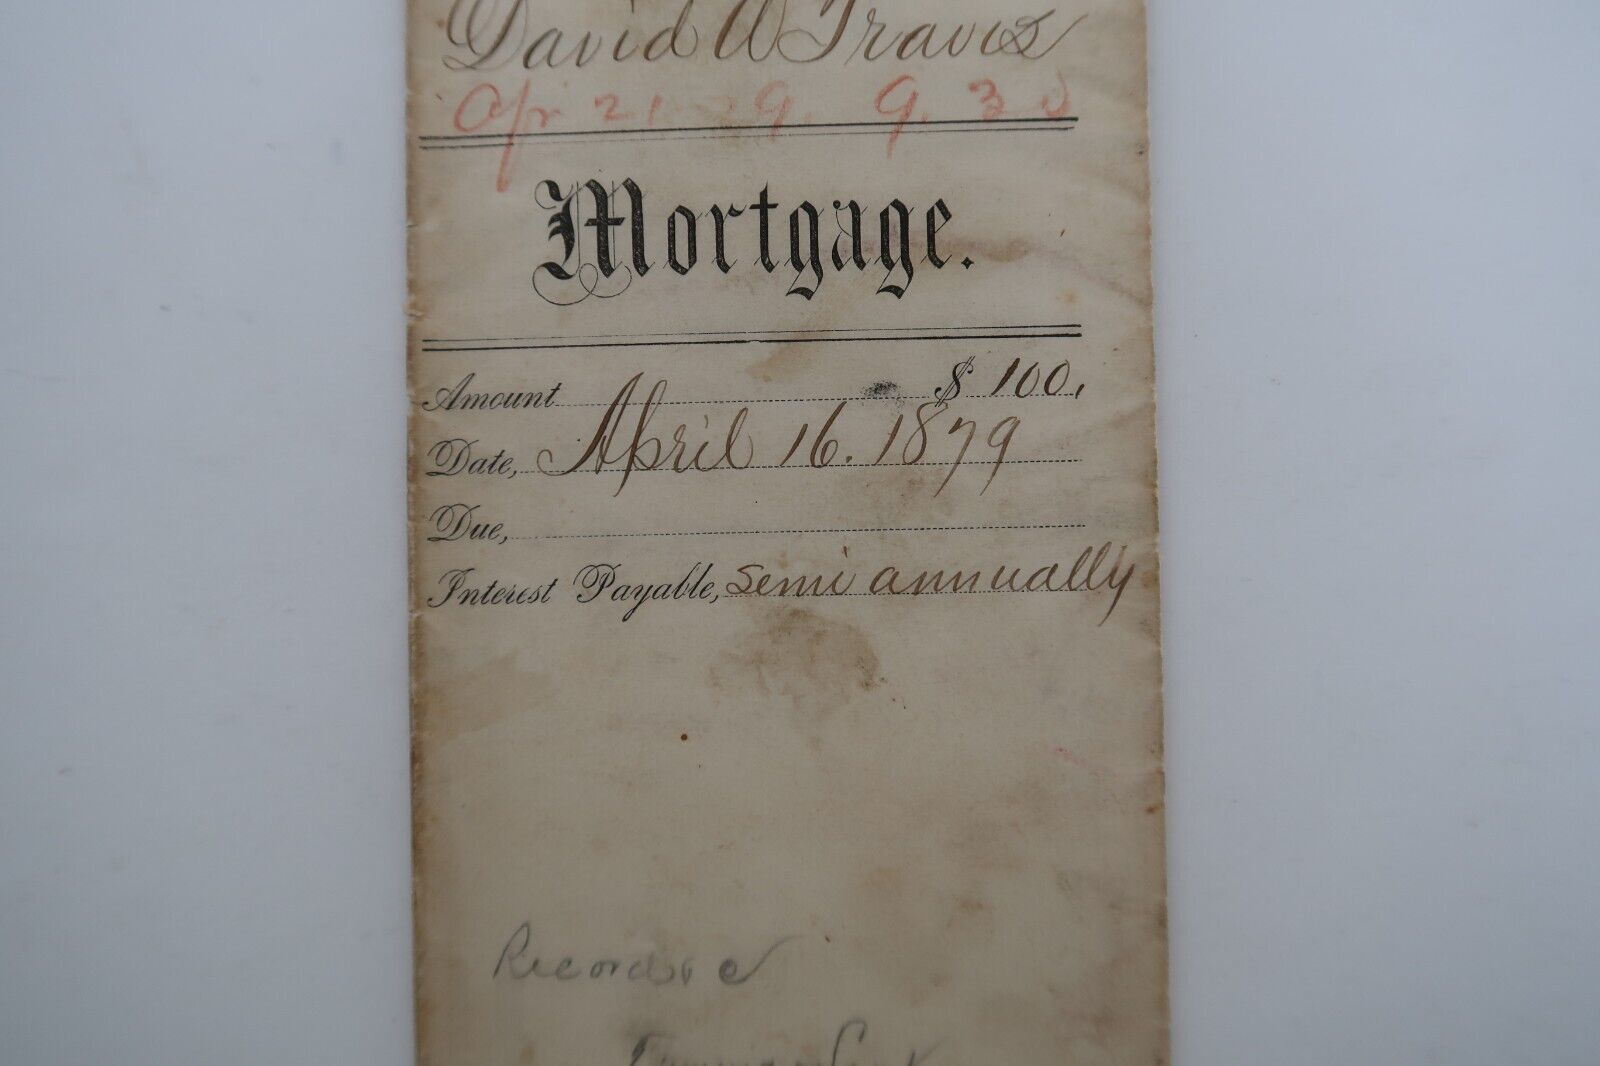 David W Travis
Apr 21 79. 9.30
Mortgage.
Amount $ 100.
Date, April 16. 1879
Due,
Interest Payable, semi annually